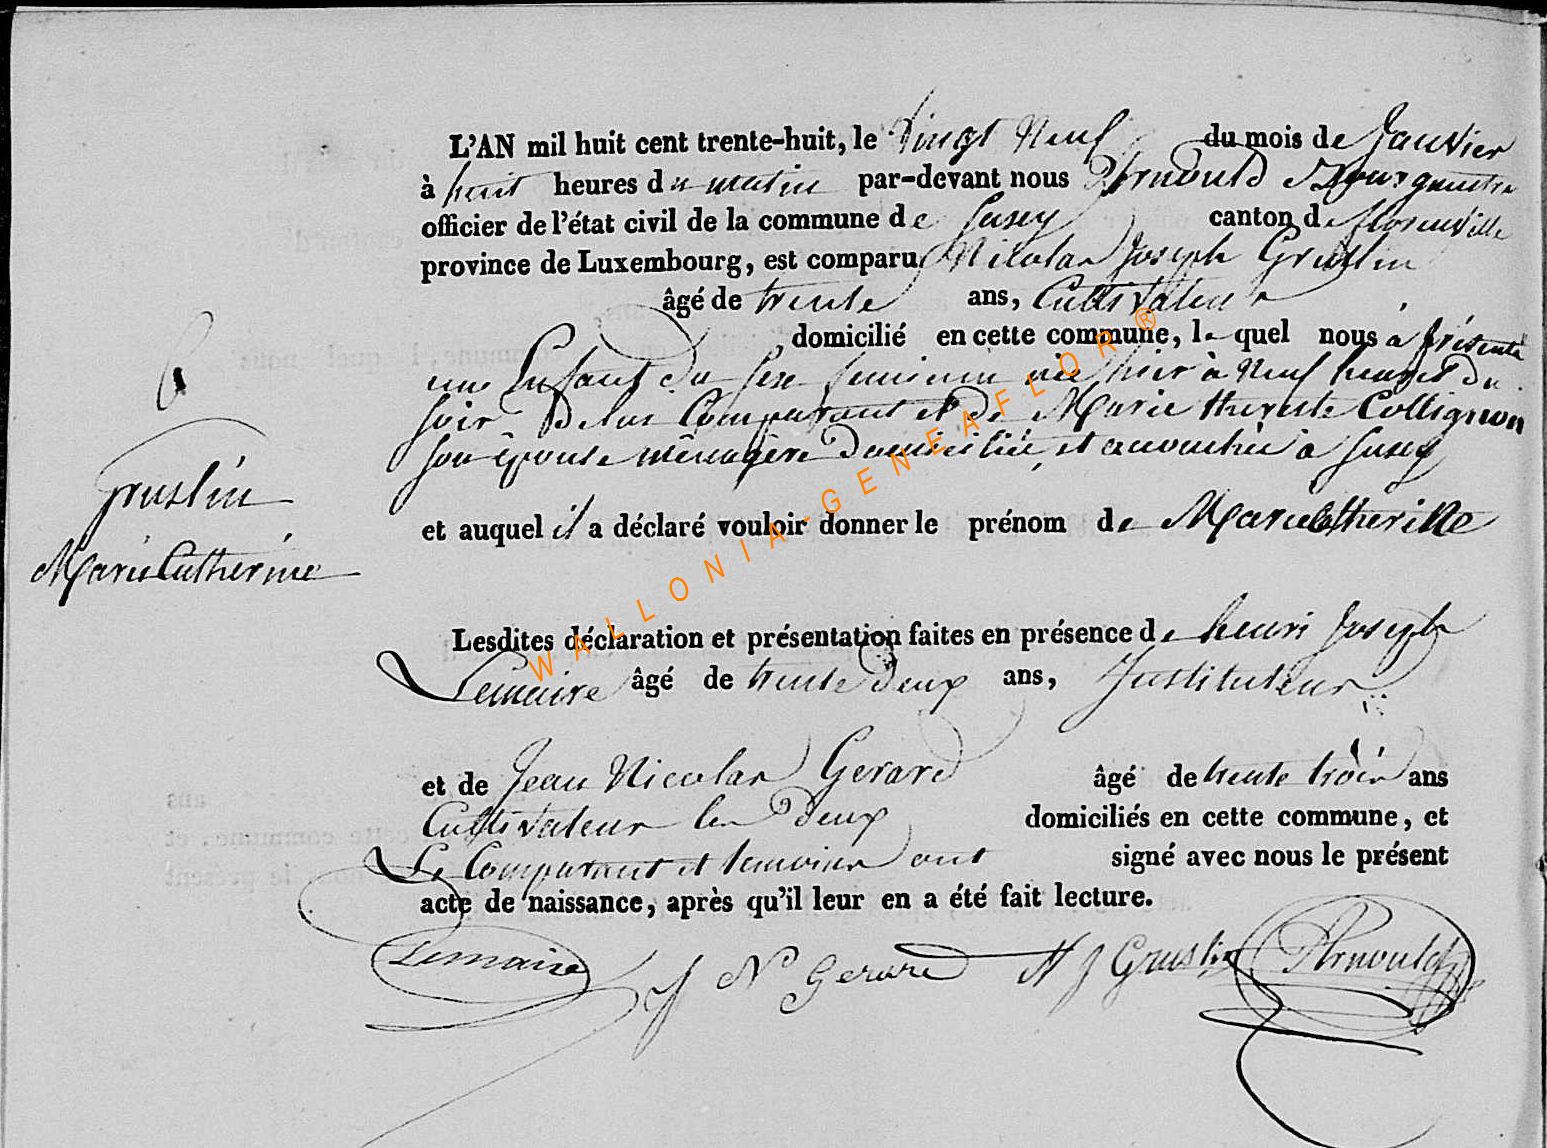 L'AN mil huit cent trente-huit, le Vingt Neuf du mois de Janvier
à huit heures du matin par-devant nous Arnould Bourgmestre
officier de l'état civil de la commune de Jusey canton de florenville
province de Luxembourg, est comparu Nicolas Joseph Gruslin
âgé de trente ans, Cultivateur
domicilié en cette commune, le quel nous à présenté
une Enfant du sexe feminin née hier à Neuf heures du
soir De lui Comparant et de Marie therese Collignon
son épouse mênagère Domiciliée, et accouchée à Jusey
6
Gruslin
Marie Catherine
et auquel il a déclaré vouloir donner le prénom de Marie Catherine
Lesdites déclaration et présentation faites en présence de henri Joseph
Lemaire âgé de trente deux ans, Instituteur
et de Jean Nicolas Gerard âgé de trente trois ans
Cultivateur les Deux domiciliés en cette commune, et
Le Comparant et temoins ont signé avec nous le présent
acte de naissance, après qu'il leur en a été fait lecture.
Lemaire J N Gerard N J Gruslin Arnould
WALLONIA-GENEAFLOR®